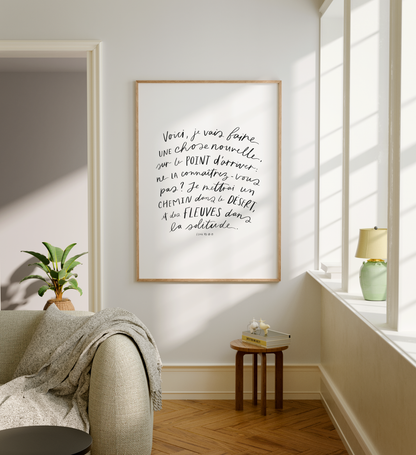 Voici, je vais faire
UNE chose nouvelle,
sur le POINT d'arriver,
ne la connaîtrez-vous
pas? Je mettrai un
CHEMIN dans le DÉSERT,
& des FLEUVES dans
la solitude.